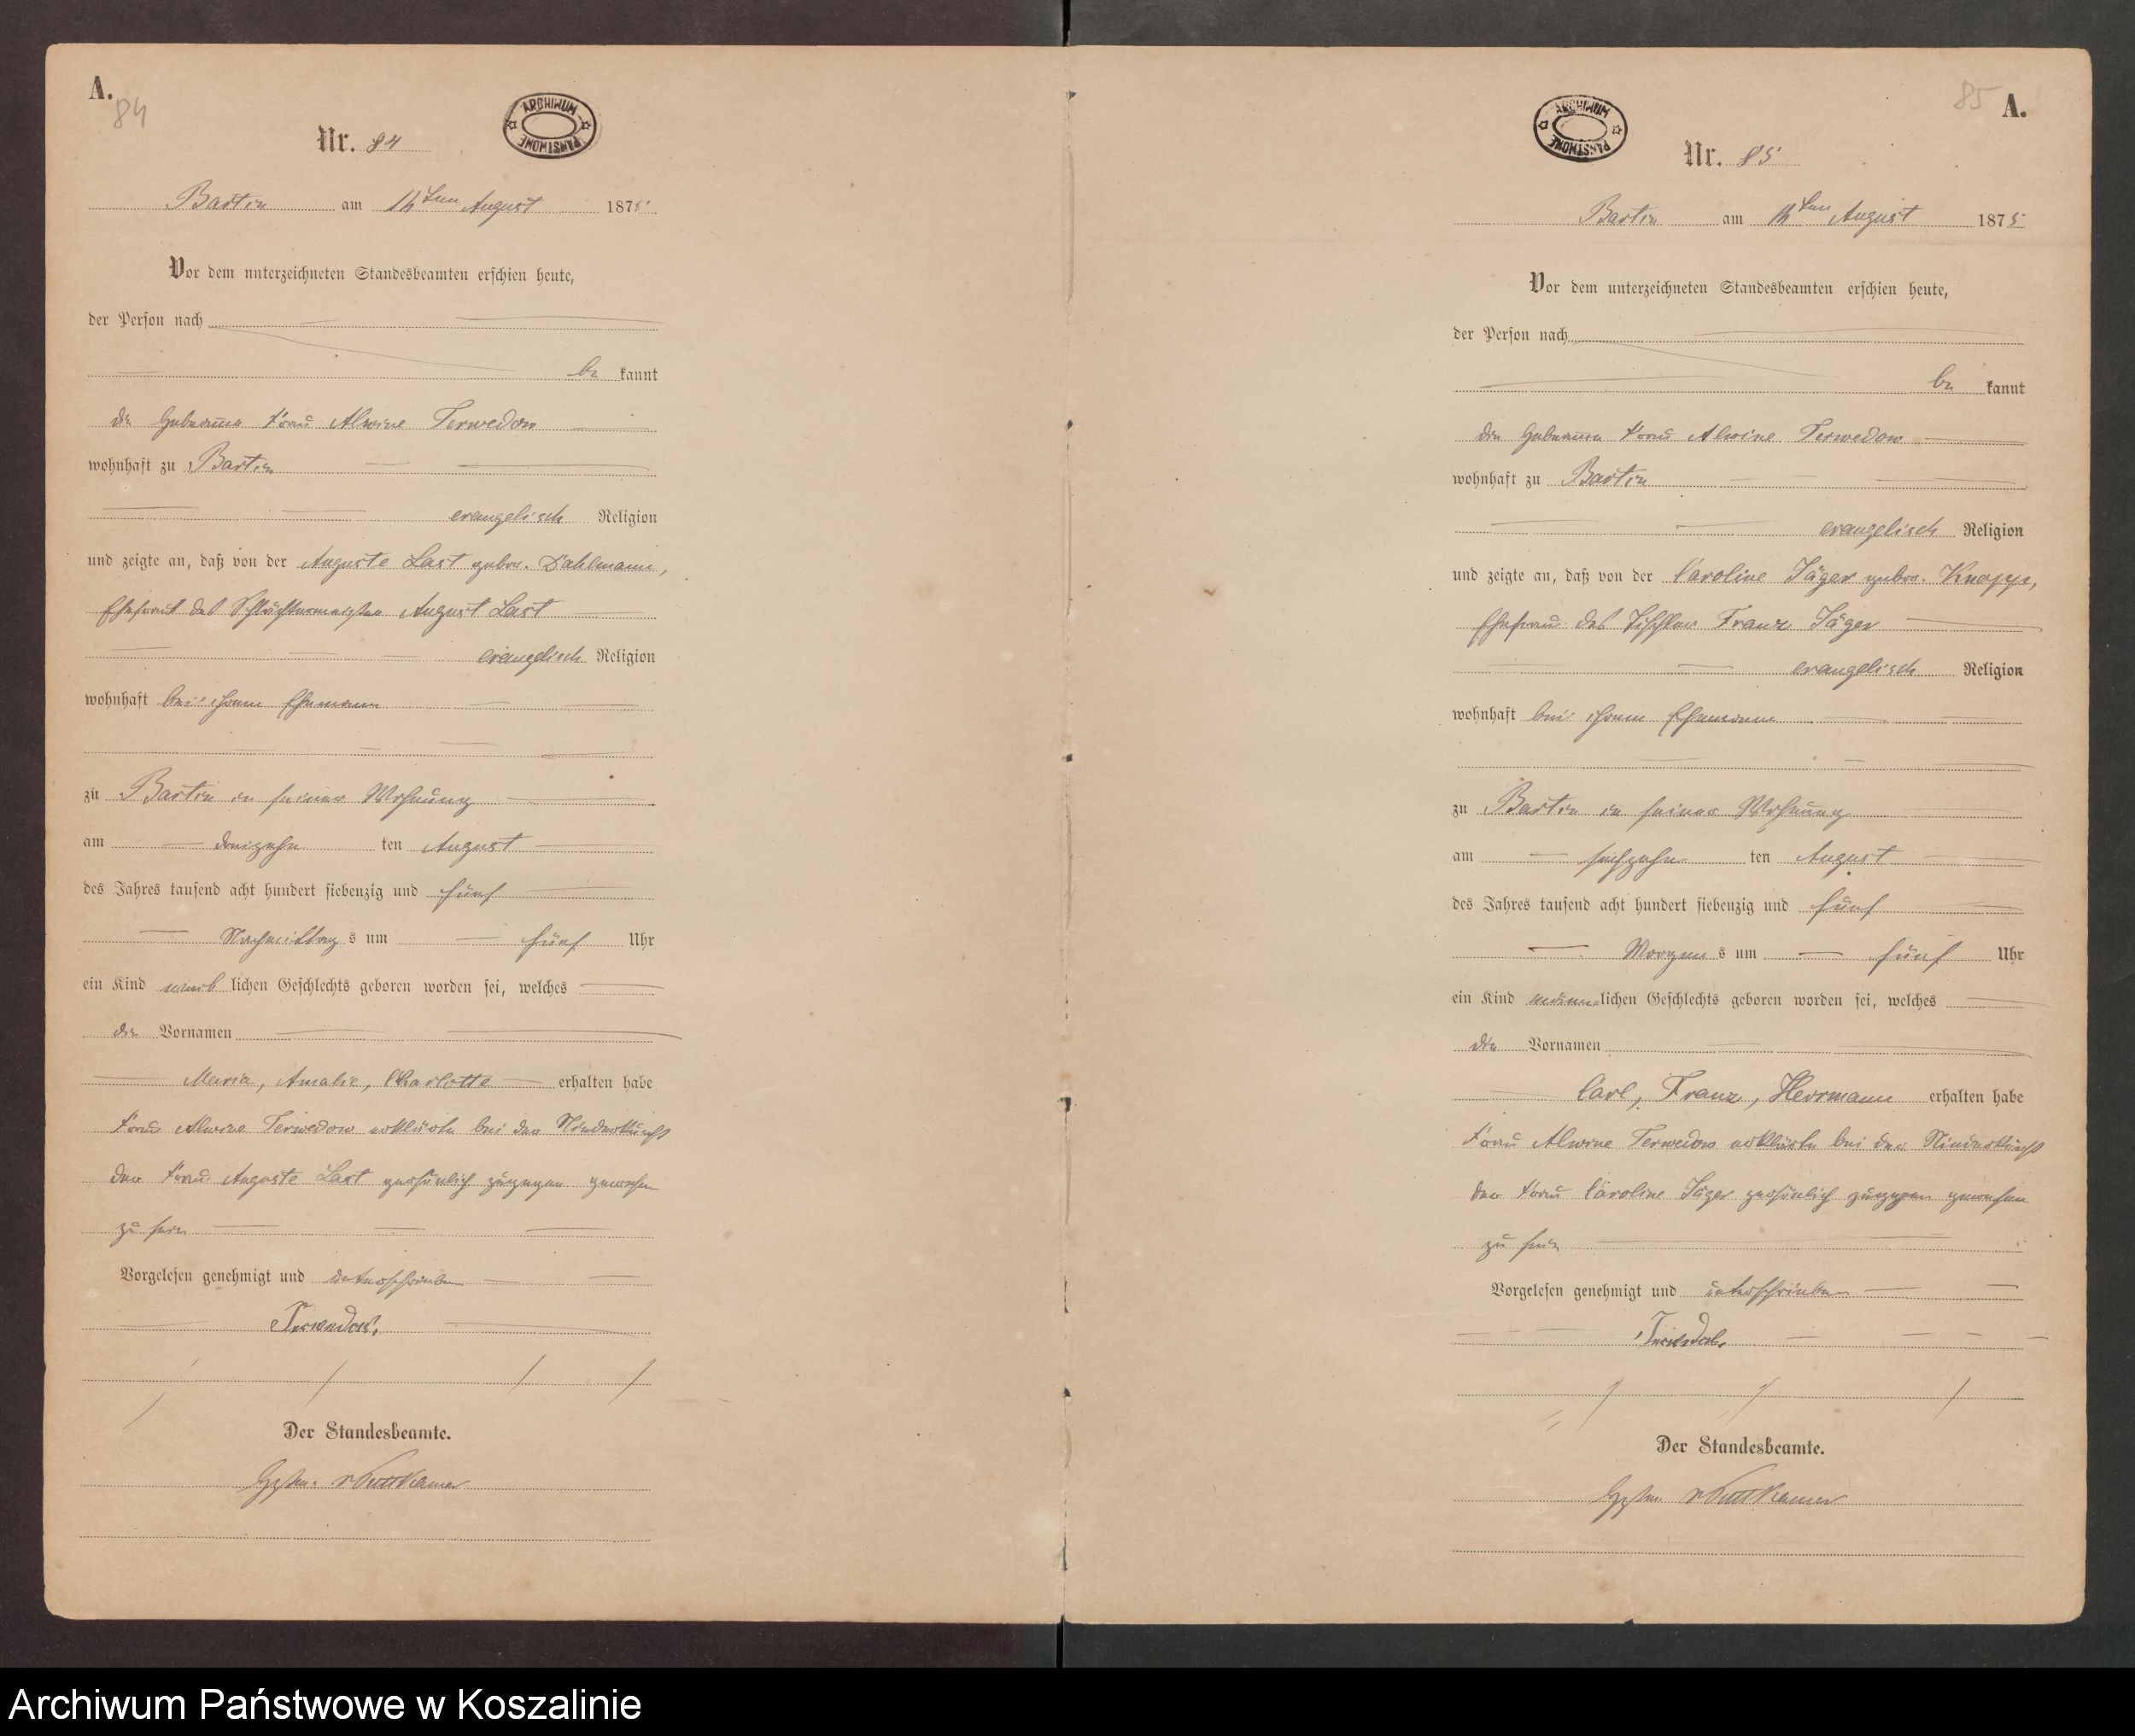 A.
84
ARCHIWUM PAŃSTWOWE
Nr. 84
Bartin am ten August 1875
Vor dem unterzeichneten Standesbeamten erschien heute,
der Person nach
be kannt
die Hebamme Frau Alwine Terwedow
wohnhaft zu Bartin
evangelisch Religion
und zeigte an, daß von der Auguste Last gebor. Dahlmann,
Ehefrau des August Last
evangelisch Religion
wohnhaft bei ihrem Ehemann
zu Bartin in seiner Wohnung
am dreizehn ten August
des Jahres tausend acht hundert siebenzig und fünf
Nachmittag s um fünf Uhr
ein Kind weib lichen Geschlechts geboren worden sei, welches
die Vornamen
Maria, Amalie, Charlotte erhalten habe
Frau Alwine Terwedow erklärte bei der Niederkunft
der Frau Auguste Last persönlich zugegen gewesen
zu sein
Vorgelesen genehmigt und unterschrieben
Terwedow.
Der Standesbeamte.
v Puttkamer
85
A.
ARCHIWUM PAŃSTWOWE
Nr. 85
Bartin am ten August 1875
Vor dem unterzeichneten Standesbeamten erschien heute,
der Person nach
be kannt
die Hebamme Frau Alwine Terwedow
wohnhaft zu Bartin
evangelisch Religion
und zeigte an, daß von der Caroline Jäger gebor. Knapp,
Ehefrau des Tischler Franz Jäger
evangelisch Religion
wohnhaft bei ihrem Ehemann
zu Bartin in seiner Wohnung
am ten August
des Jahres tausend acht hundert siebenzig und fünf
Morgen s um fünf Uhr
ein Kind männ lichen Geschlechts geboren worden sei, welches
die Vornamen
Carl, Franz, Herrmann erhalten habe
Frau Alwine Terwedow erklärte bei der Niederkunft
der Frau Caroline Jäger persönlich zugegen gewesen
zu sein
Vorgelesen genehmigt und unterschrieben
Terwedow.
Der Standesbeamte.
v Puttkamer
Archiwum Państwowe w Koszalinie